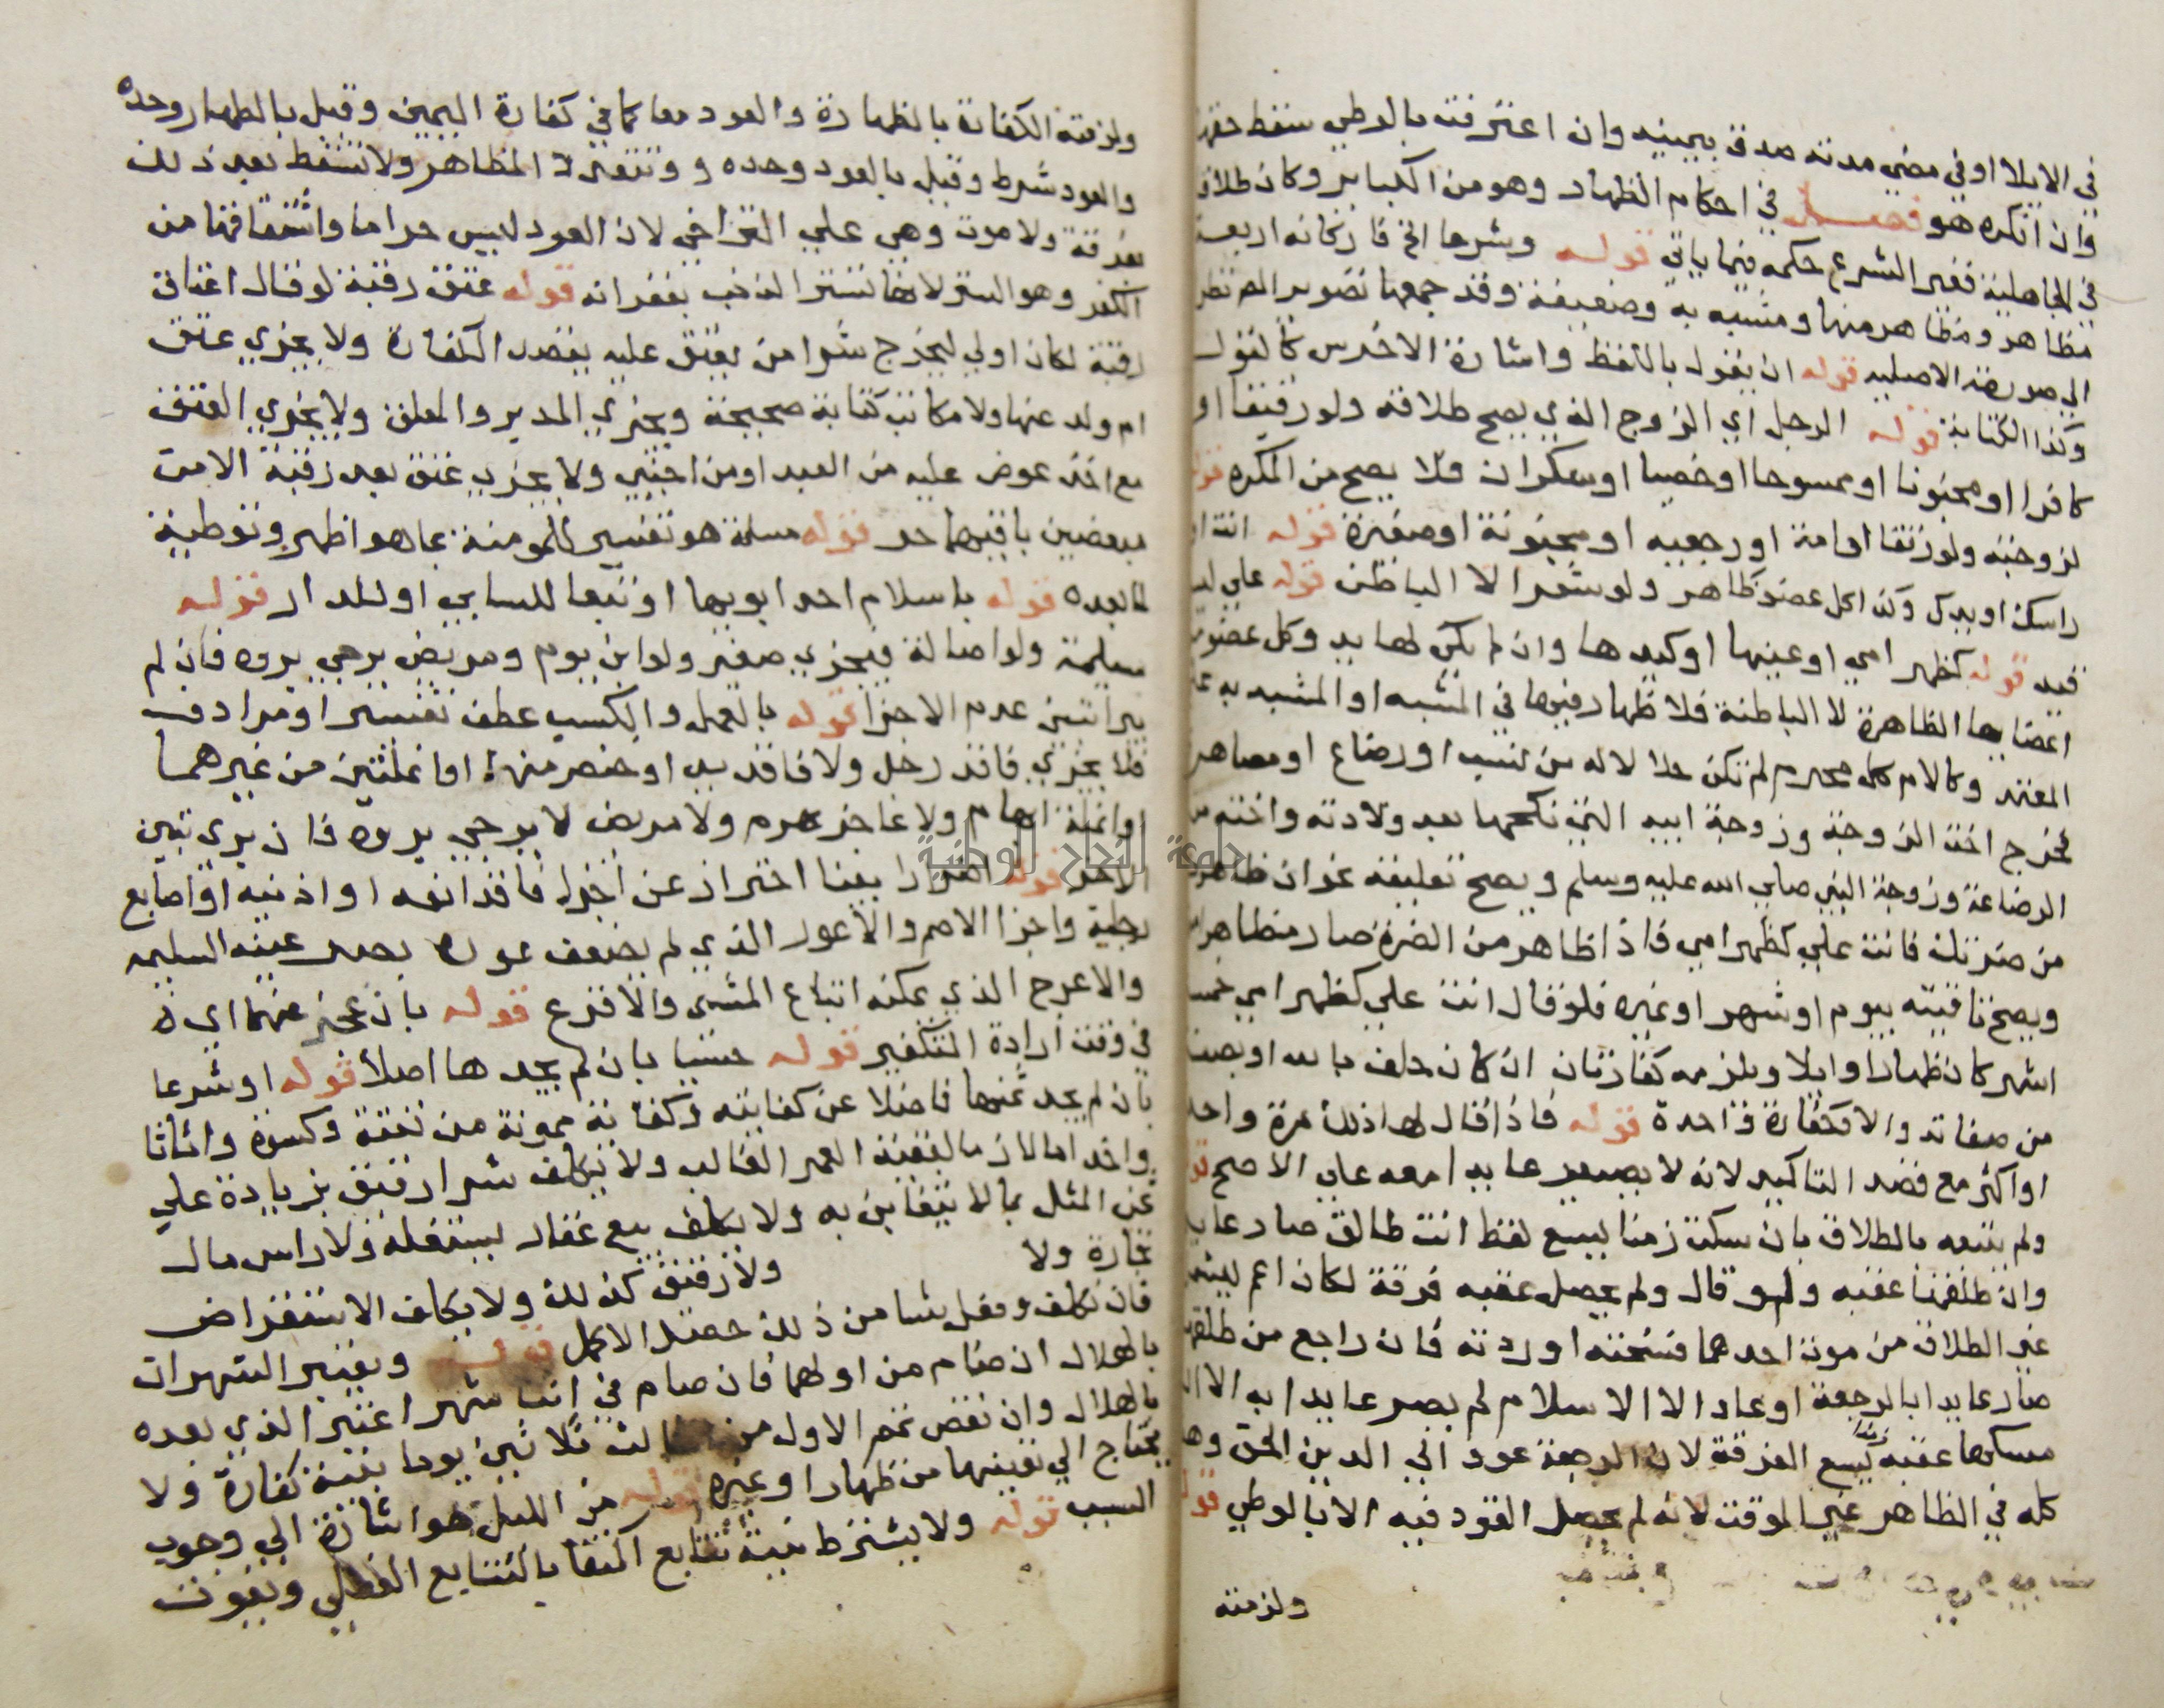 في الايلا او في مضي مدته صدق بيمينه وان اعترفت بالوطي سقط حقها
وان انكره هو فصل في احكام الظهار وهو من الكباير وكان طلاقا
في الجاهلية فغير الشرع حكمه فيما ياتي قوله وشرعا الخ فاركانه اربعة
مظاهر ومظاهر منها ومشبه به وصيغة وقد جمعها تصوير المص نظرا
الي صورته الاصليه قوله ان يقول باللفظ واشارة الاخرس كالقول
وكذا الكتابة قوله الرجل اي الزوج الذي يصح طلاقه ولو رقيقا او
كافرا او مجنونا او ممسوحا او خصيا او سكران فلا يصح من المكره قوله
لزوجته ولو رتقا او امة او رجعيه او مجنونة او صغيرة قوله انت او
راسك او يدك وكذا كل عضو ظاهر ولو شعرا لا الباطن قوله علي ليس
قيد قوله كظهر امي او عينها او كيدها وان لم يكن لها يد وكل عضو من
اعضايها الظاهرة لا الباطنة فلا ظهار فيها في المشبه او المشبه به علي
المعتمد وكالام كل محرم لم تكن حلا لاله من نسب او رضاع او مصاهرة
فخرج اخت الزوجة وزوجة ابيه التي نكحها بعد ولادته واخته من
الرضاعة وزوجة النبي صلي الله عليه وسلم ويصح تعليقه نحو ان ظاهرت
من ضرتك فانت علي كظهر امي فاذا ظاهر من الضرة صار مظاهرا من
ويصح تاقيته بيوم او شهر او غيره فلو قال انت علي كظهر امي خمسة
اشهر كان ظهارا وايلا ويلزمه كفارتان ان كان حلف بالله او بصفة
من صفاته والا فكفارة واحدة قوله فاذا قال لها ذلك مرة واحدة
او اكثر مع قصد التاكيد لانه لا يصير عايدا معه علي الاصح قوله
ولم يتبعه بالطلاق بان سكت زمنا يسع لفظ انت طالق صار عايدا
وان طلقها عقبه ولو قال ولم يحصل عقبه فرقة لكان اعم ليشمل
غير الطلاق من موت احدهما فسخته او ردته فان راجع من طلقها
صار عايدا بالرجعة او عاد الا الاسلام لم يصر عايدا به الا ان
مسكها عقبه زمنا يسع الفرقة لان الرجعة عود الي الدين الحق وهذا
كله في الظاهر غير الموقت لانه لم يحصل العود فيه الا بالوطي قوله
ولزمته
ولزمته الكفارة بالظهارة والعود معا كما في كفارة اليمين وقيل بالظهار وحده
والعود شرط وقيل بالعود وحده و وتتعين لا المظاهر ولا تسقط بعد ذلك
بفرقة ولا موت وهي علي التراخي لان العود ليس حراما واشتقاقها من
الكفر وهو الستر لانها تستر الذنب بغفرانه قوله عتق رقبة لو قال اعتاق
رقبة لكان اولي ليخرج شرا من يعتق عليه بقصد الكفارة ولا يجزي عتق
ام ولد عنها ولا مكاتب كتابة صحيحة ويجزي المدبر والمعلق ولا يجزي العتق
مع اخذ عوض عليه من العبد او من اجنبي ولا يجزي عتق بعد رقبة الامن
مبعضين باقيهما حر قوله مسلمة هو تفسير للمومنة بما هو اظهر وتوطية
لما بعده قوله باسلام احد ابويها او تبعا للسابي او للدار قوله
سليمة ولو اصالة فيجزي صغير ولو ابن يوم ومريض يرجي بروه فان لم
يبرا تبين عدم الاجزا قوله بالعمل والكسب عطف تفسير او مرادف
فلا يجزي فاقد رجل ولا فاقد يد او خنصر منها او انملتين من غيرهما
او انملة ابهام ولا عاجز هرم ولا مريض لا يرجي بروه فان بري تبين
الاجزا قوله اضرارا بينا احتراز عن اجزا فاقد انفه او اذنيه او اصابع
رجليه واجزا الاصم والاعور الذي لم يضعف عوره بصر عينه السليمه
والاعرج الذي يمكنه اتباع المشي والاقرع قوله بان عجز عنها اي
في وقت ارادة التكفير قوله حسيا بان لم يجدها اصلا قوله او شرعا
بان لم يجد ثمنها فاضلا عن كفايته وكفاية ممونة من نفقة وكسوة واثاثا
واخداما لازما لبقية العمر الغالب ولا يكلف شرا رقيق بزيادة علي
ثمن المثل بما لا يتغابن به ولا يكلف بيع عقار يستغله ولا راس مال
تجارة ولا ولا رقيق كذلك ولا يكلف الاستقراض
فان تكلف وفعل شيا من ذلك حصل الاكمل قوله ويعتبر الشهران
بالهلال ان صام من اولهما فان صام في اثنا شهر اعتبر الذي بعده
بالهلال وان نقص تمم الاول من الثالث ثلاثين يوما بنية كفارة ولا
يحتاج الي تعيينها من ظهار او غيره قوله من الليل هو اشارة الي وجوب
السبب قوله ولا يشترط نية تتابع اكتفا بالتتابع الفعلي ويفوت
جامعة النجاح الوطنية